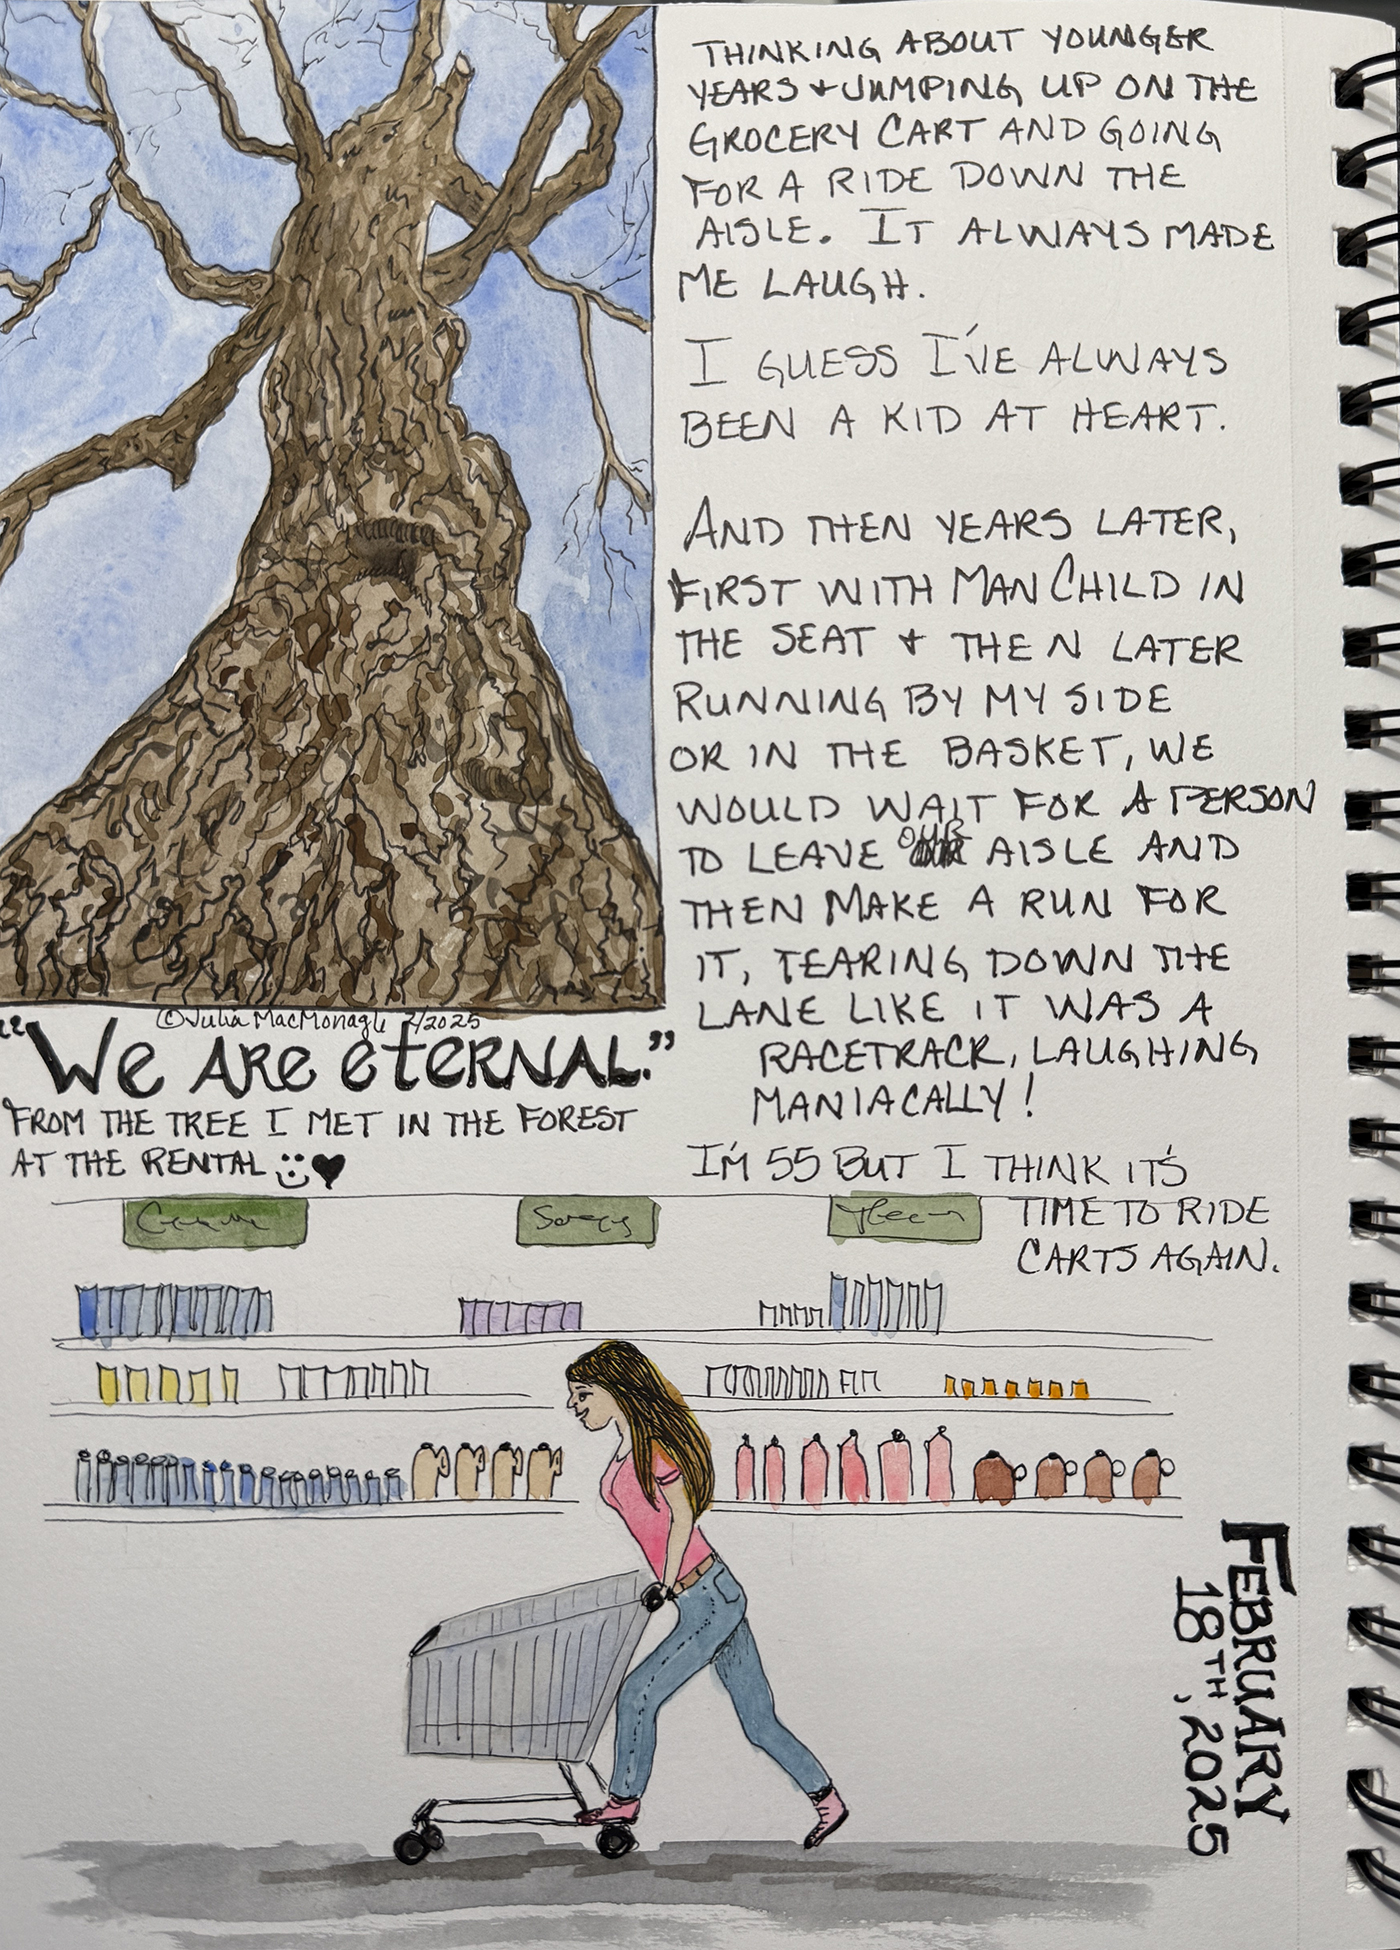 THINKING ABOUT YOUNGER
YEARS + JUMPING UP ON THE
GROCERY CART AND GOING
FOR A RIDE DOWN THE
AISLE. IT ALWAYS MADE
ME LAUGH.
I GUESS I'VE ALWAYS
BEEN A KID AT HEART.
AND THEN YEARS LATER,
FIRST WITH MAN CHILD IN
THE SEAT + THEN LATER
RUNNING BY MY SIDE
OR IN THE BASKET, WE
WOULD WAIT FOR A PERSON
TO LEAVE OUR AISLE AND
THEN MAKE A RUN FOR
IT, TEARING DOWN THE
LANE LIKE IT WAS A
RACETRACK, LAUGHING
MANIACALLY!
I'M 55 BUT I THINK IT'S
TIME TO RIDE
CARTS AGAIN.
©Julia MacMonagle 2/2025
"WE ARE eterNAL."
FROM THE TREE I MET IN THE FOREST
AT THE RENTAL
FEBRUARY
18TH, 2025